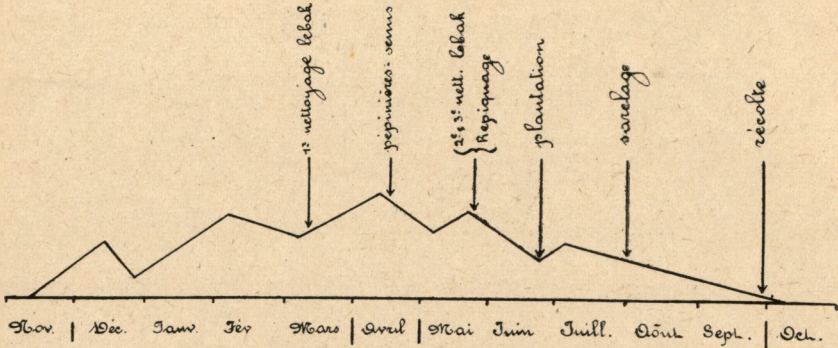 1º nettoyage lebak
pépinières - semis
(2º & 3º nett. lebak
{ Repiquage
plantation
sarclage
récolte
Nov. | Déc. Janv. Fév Mars | Avril | Mai Juin Juill. Août Sept. | Oct.